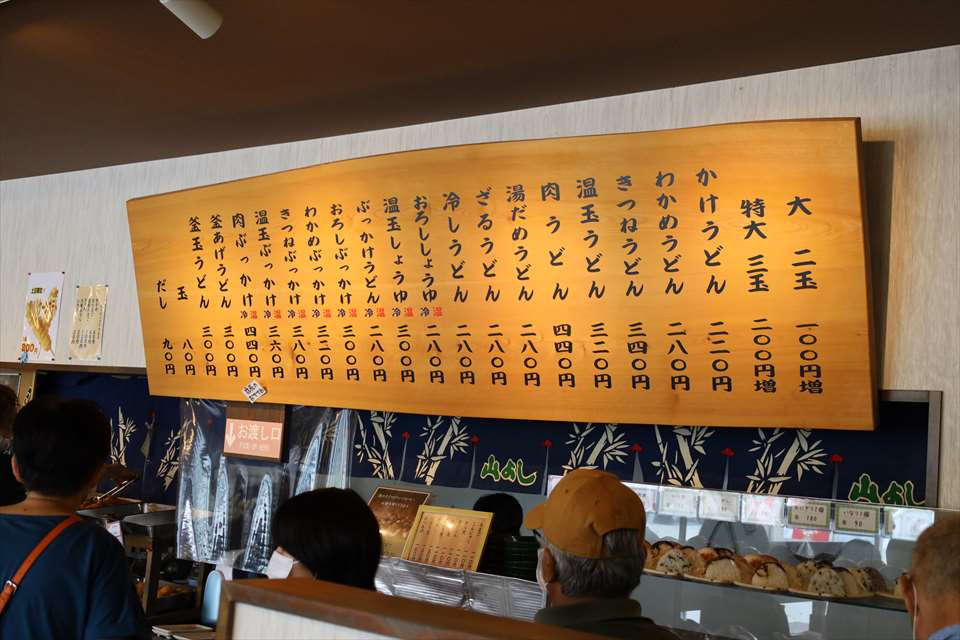 大 二玉 一〇〇円増
特大 三玉 二〇〇円増
かけうどん 二二〇円
わかめうどん 二八〇円
きつねうどん 三四〇円
温玉うどん 三二〇円
肉うどん 四四〇円
湯だめうどん 二八〇円
ざるうどん 二八〇円
冷しうどん 二八〇円
おろししょうゆ 冷温 二八〇円
温玉しょうゆ 冷温 三〇〇円
ぶっかけうどん 冷温 二八〇円
おろしぶっかけ 冷温 三〇〇円
わかめぶっかけ 冷温 三二〇円
きつねぶっかけ 冷温 三八〇円
温玉ぶっかけ 冷温 三六〇円
肉ぶっかけ 冷温 四四〇円
釜あげうどん 三〇〇円
釜玉うどん 三〇〇円
玉 八〇円
だし 九〇円
お渡し口
山よし
山よし
180
90